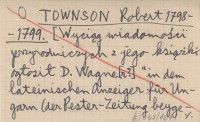 O TOWNSON Robert 1798-
-1799. [Wyciąg wiadomości
przyrodniczych z jego książki
ogłosił D. Wagner?] "in dem
lateinischen Anzeiger für Un-
garn (der Pester-Zeitung beyge-